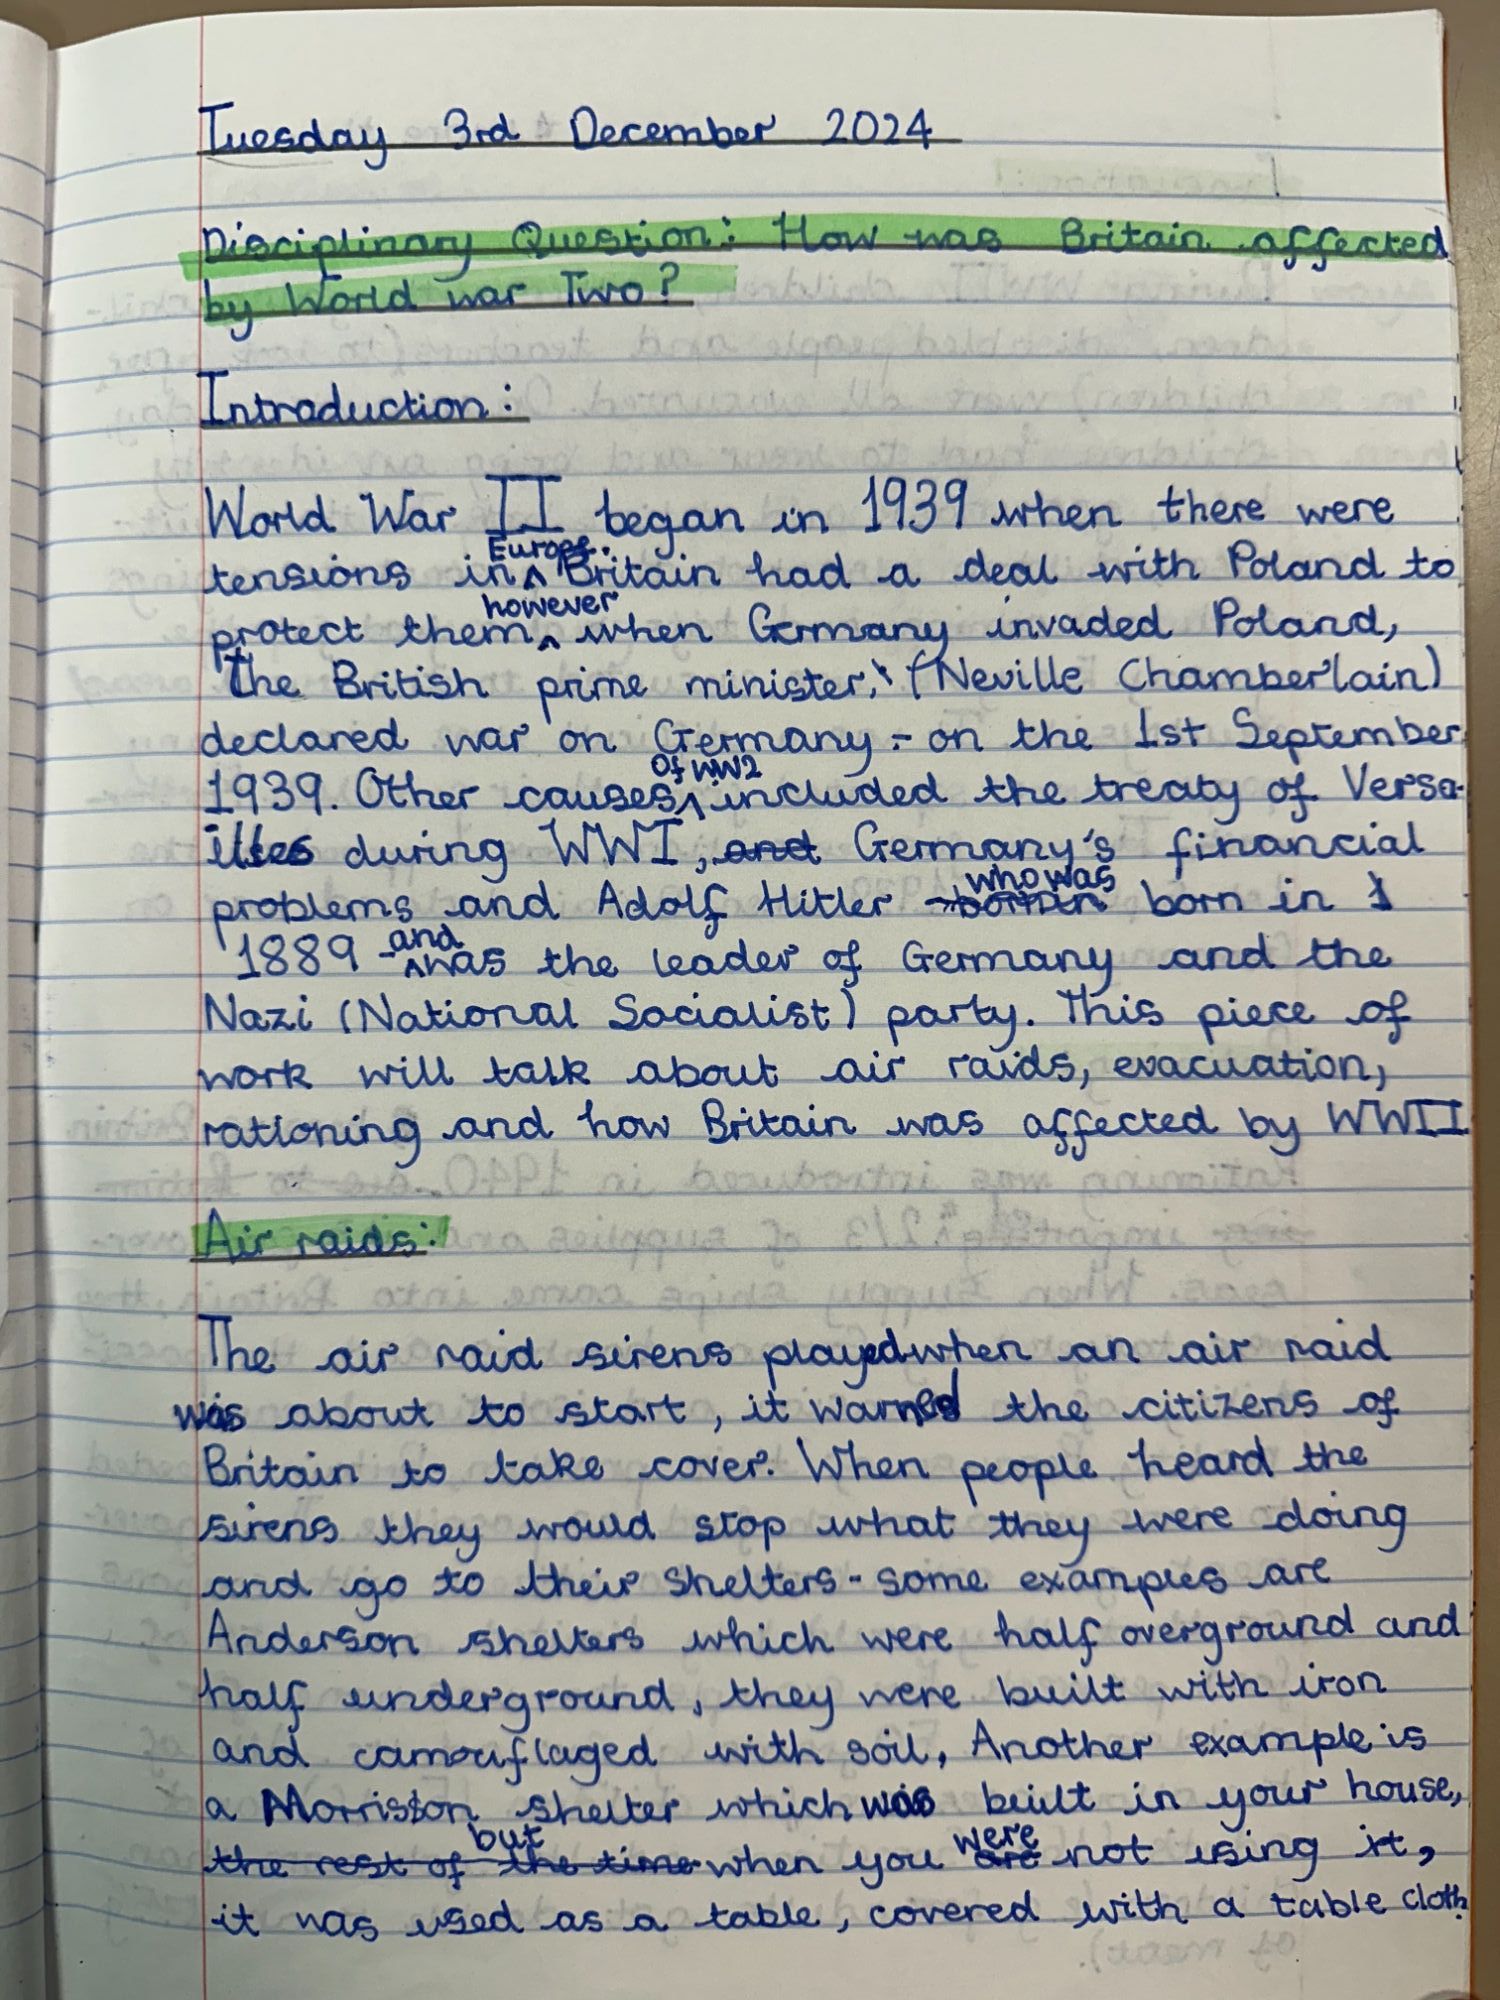 Tuesday 3rd December 2024
Disciplinary Question: How was Britain affected
by World war Two?
Introduction:
World War II began in 1939 when there were
tensions in Europe. Britain had a deal with Poland to
protect them however when Germany invaded Poland,
The British prime minister, (Neville Chamberlain)
declared war on Germany - on the 1st September
1939. Other causes of WW2 included the treaty of Versa-
illes during WWI, and Germany's financial
problems and Adolf Hitler who was born in 1
1889 and was the leader of Germany and the
Nazi (National Socialist) party. This piece of
work will talk about air raids, evacuation,
rationing and how Britain was affected by WWII
Air raids:
The air raid sirens played when an air raid
was about to start, it warned the citizens of
Britain to take cover. When people heard the
sirens they would stop what they were doing
and go to their shelters - some examples are
Anderson shelters which were half overground and
half underground, they were built with iron
and camouflaged with soil, Another example is
a Morrisson shelter which was built in your house,
the rest of the time but when you are were not using it,
it was used as a table, covered with a table cloth.